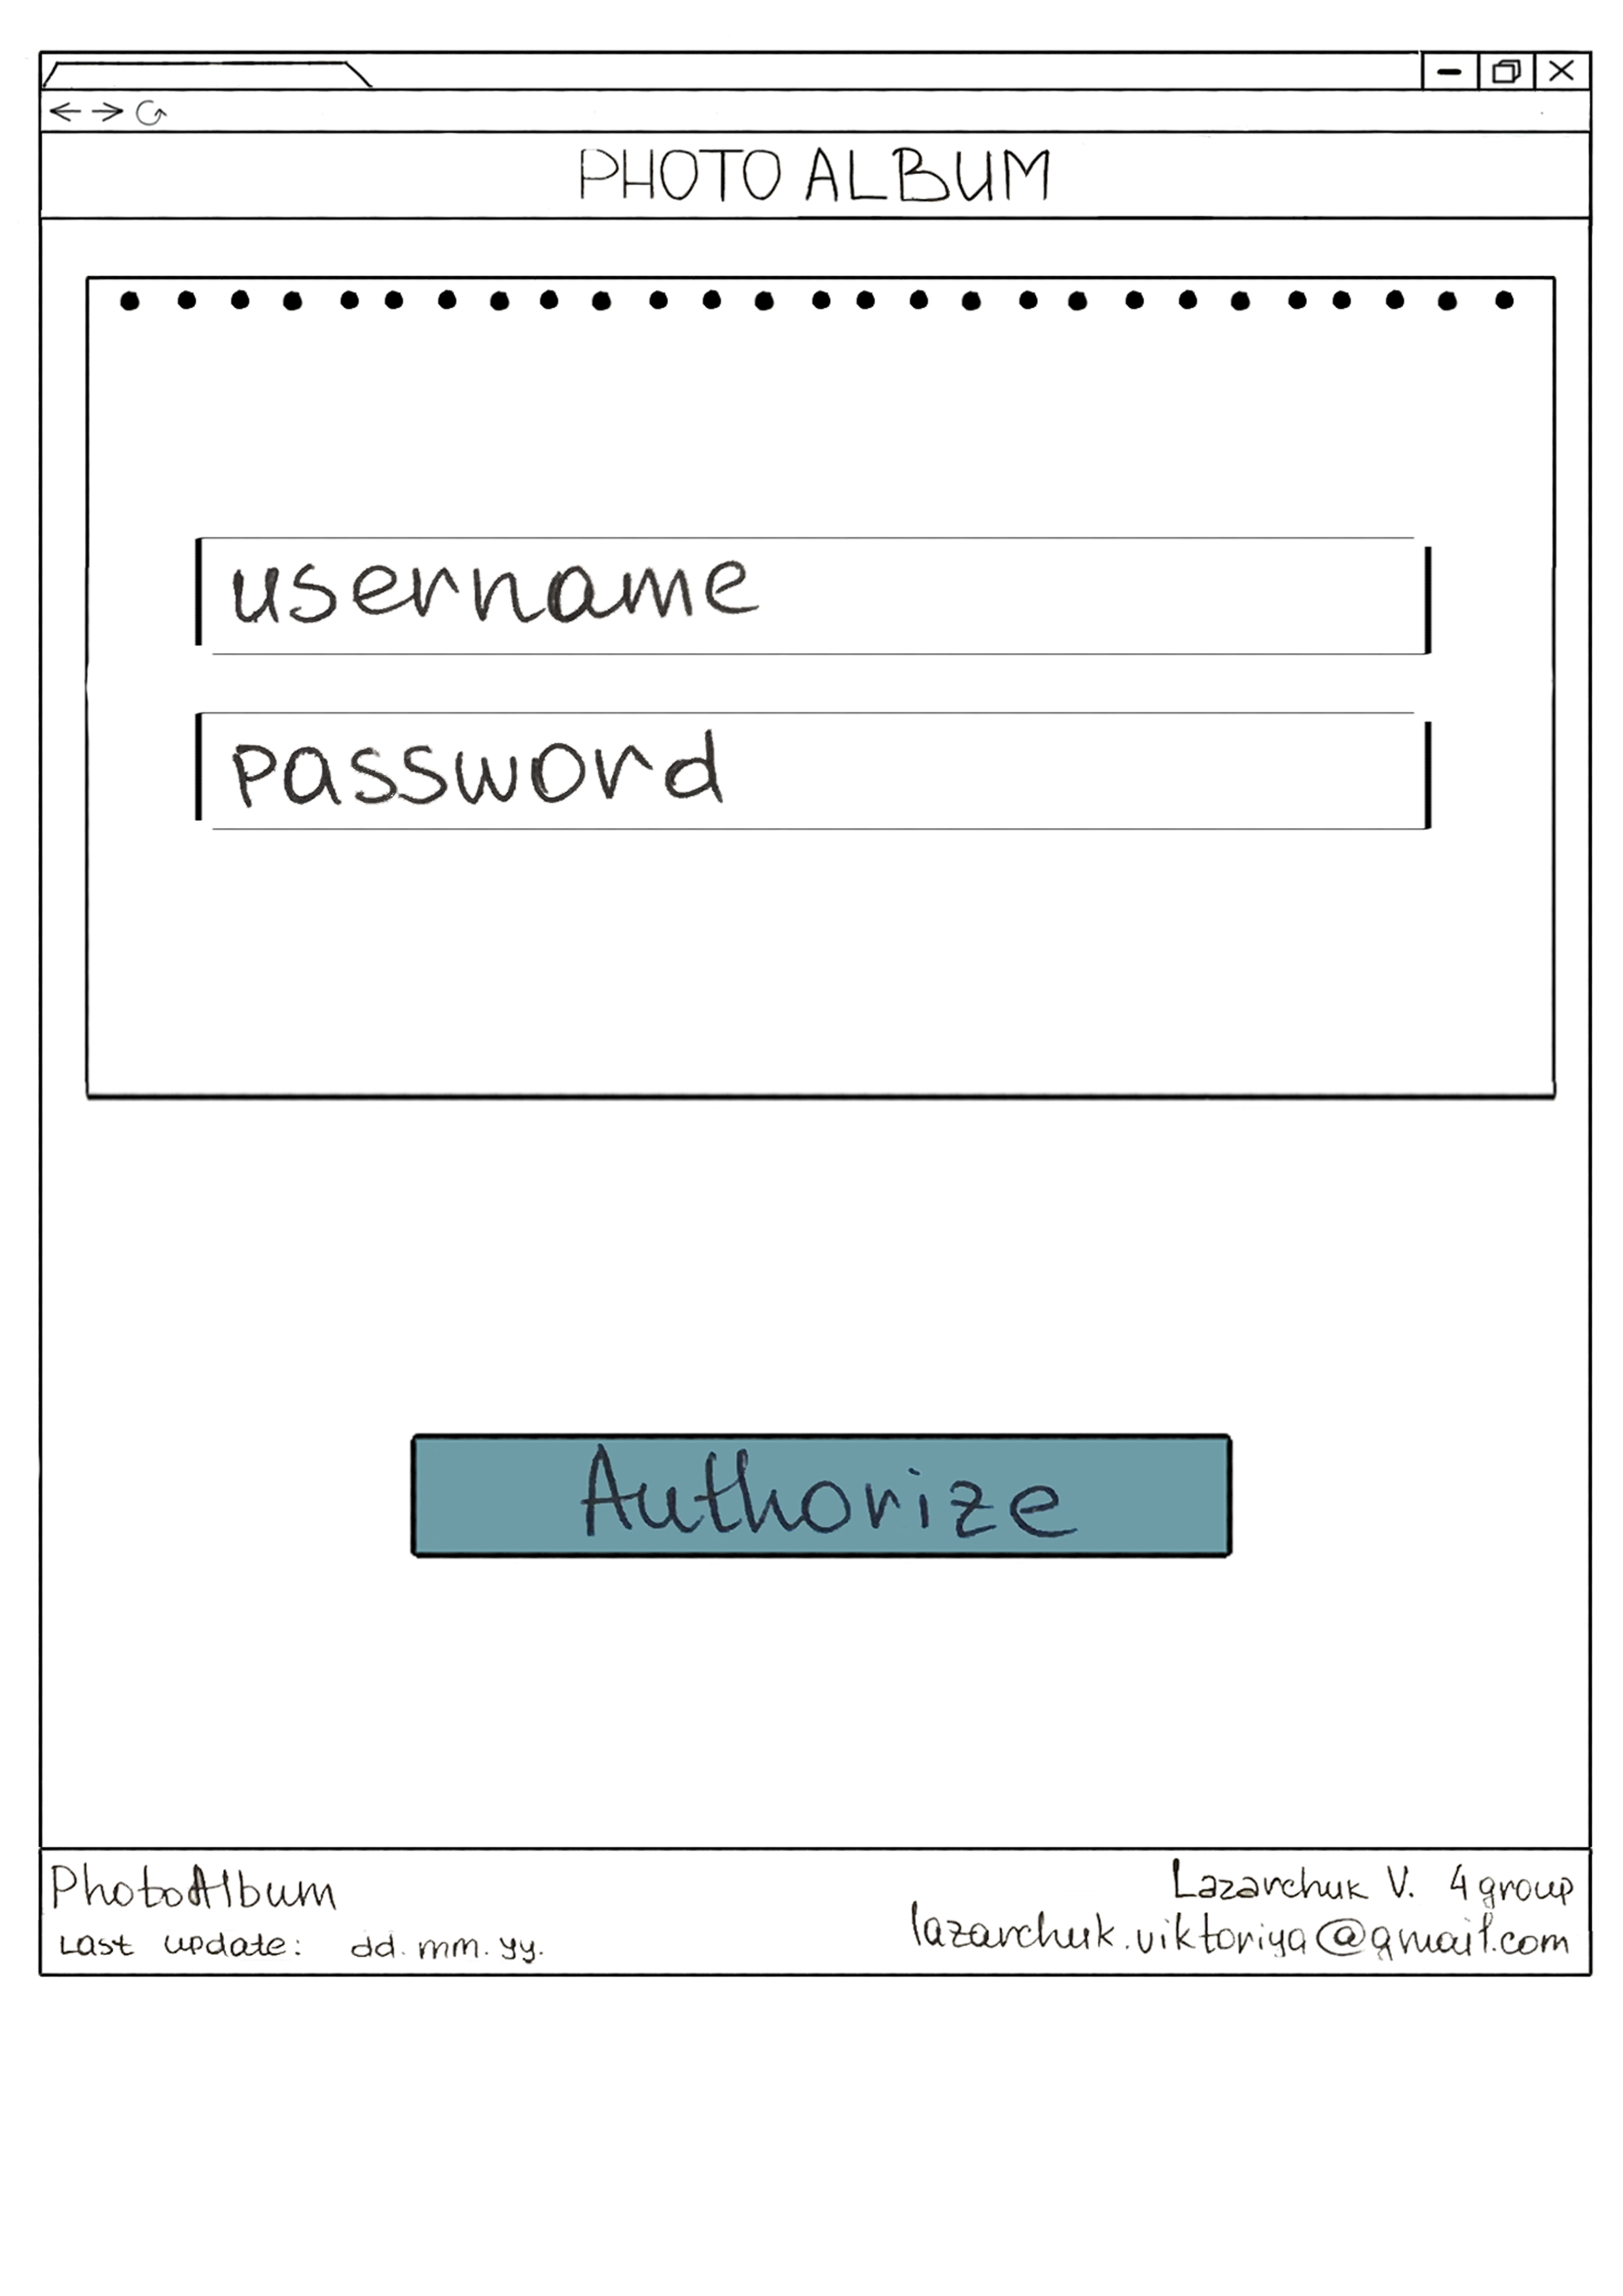 PHOTO ALBUM
username
password
Authorize
PhotoAlbum
Last update: dd.mm.yy.
Lazarchuk V. 4 group
lazarchuk.viktoriya@gmail.com